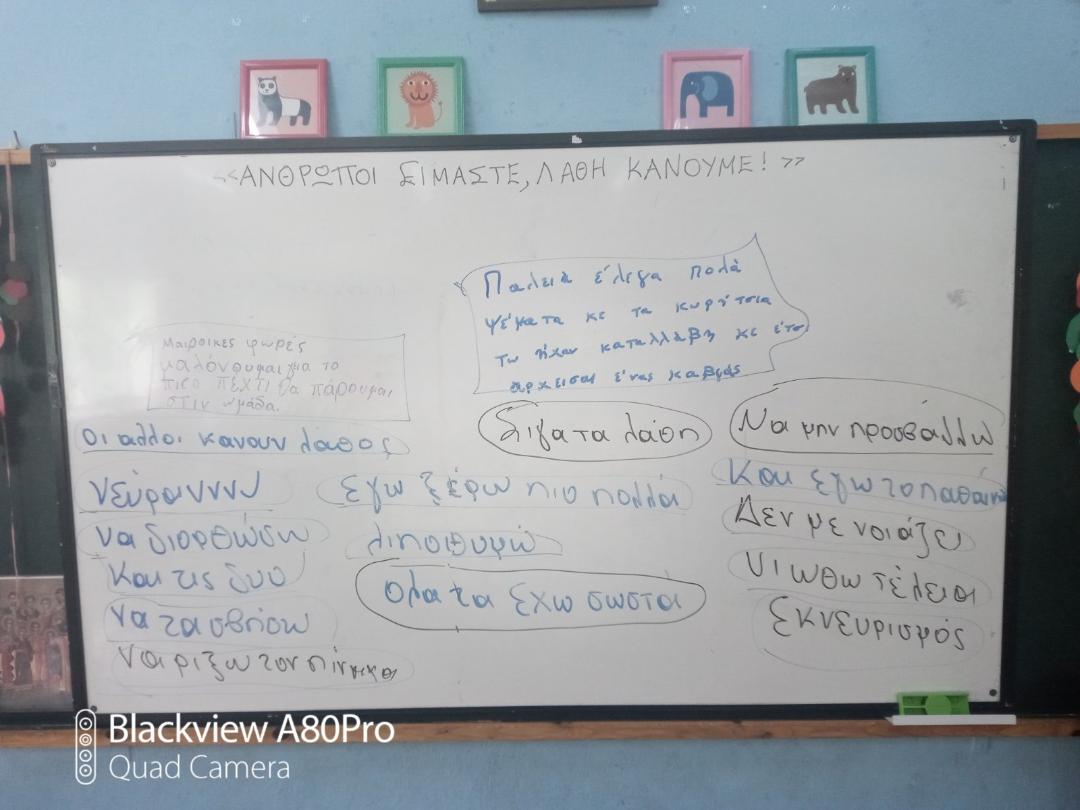 «ΑΝΘΡΩΠΟΙ ΕΙΜΑΣΤΕ, ΛΑΘΗ ΚΑΝΟΥΜΕ! »
Παλειά έλεγα πολά
ψέματα κε τα κορήτσια
το ήχαν καταλλάβη κε έτσι
άρχεισαι ένας καβγάς
Μαιροικες φωρές
μαλόνουμαι για το
πιο πέχτι θα πάρουμαι
στιν ομάδα.
Οι αλλοι κανουν λαθος
Σιγα τα λάθη
Να μην προσβάλλω
νεύραννν
Εγω ξέρω πιο πολλά
Και εγω το παθαίνω
να διορθώσω
λιποθυμώ
Δεν με νοιάζει
και τις δυο
Ολα τα εχω σωστα
νιωθω τέλεια
να τα σβήσω
εκνευρισμός
να ριξω τον πίνακα
Blackview A80Pro
Quad Camera